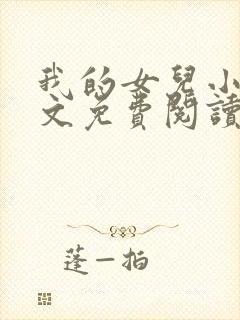 我的女兒小
文免費閱讀
蓬一拍